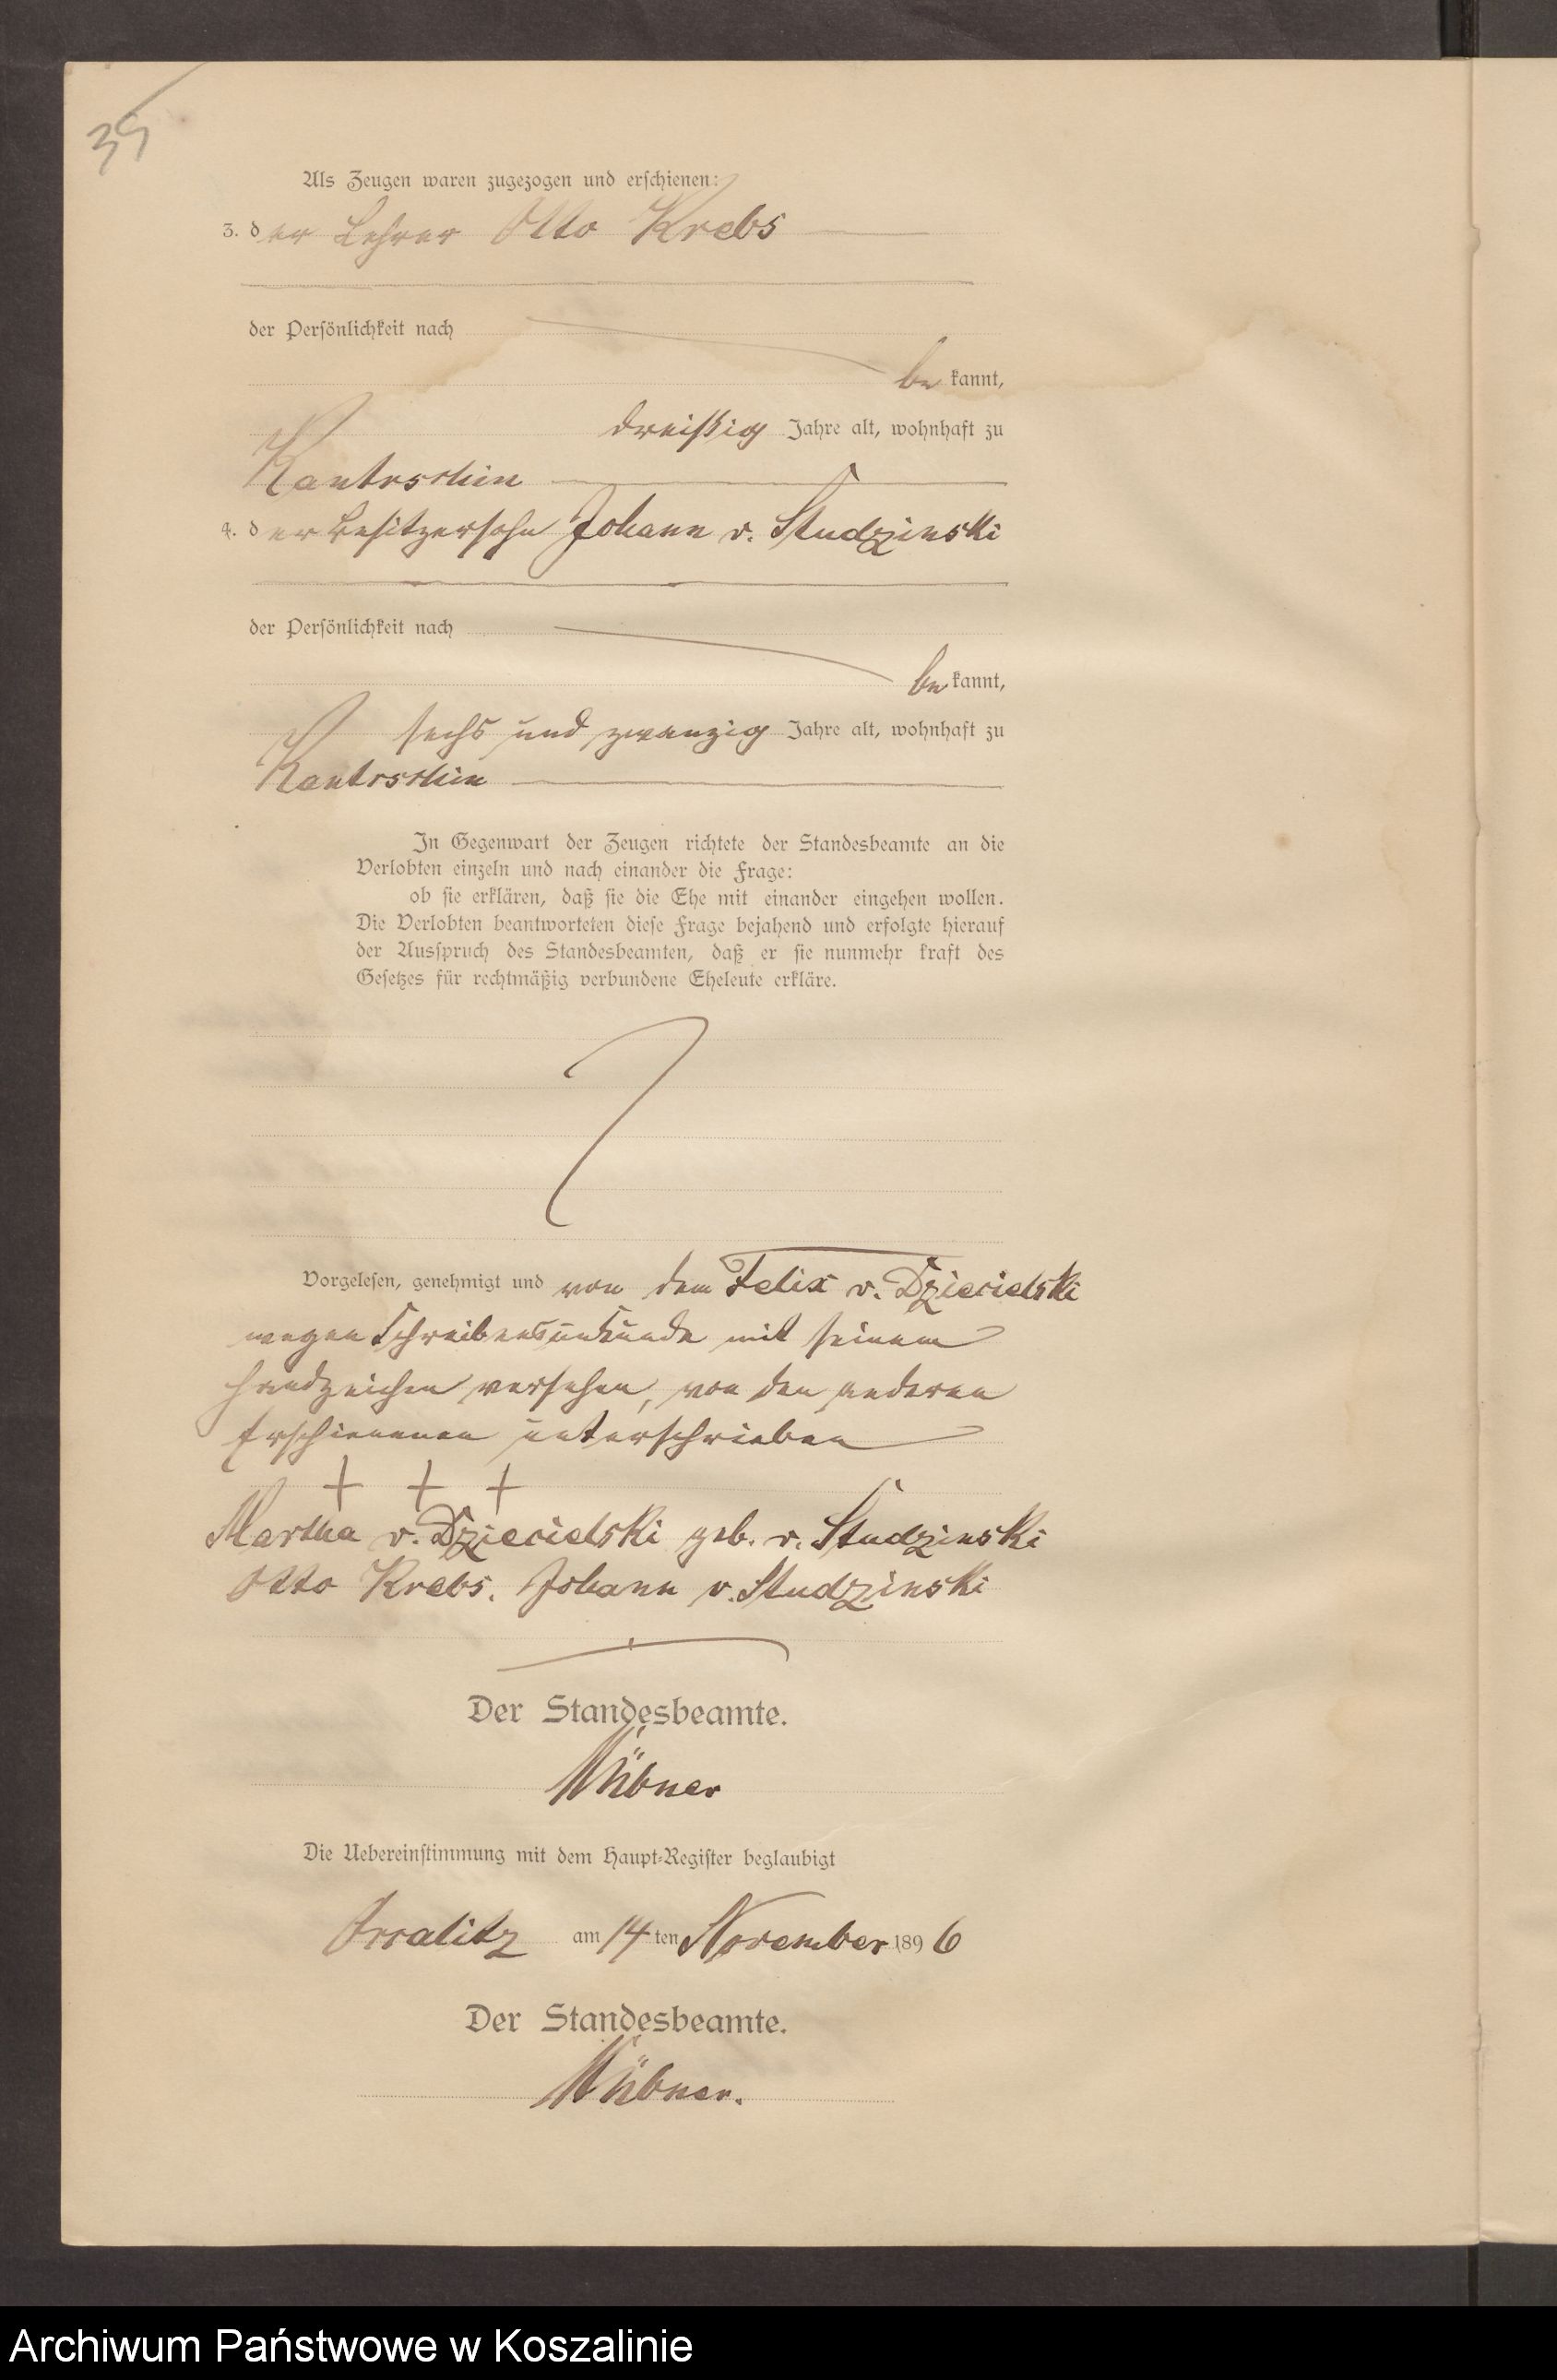 39
Als Zeugen waren zugezogen und erschienen:
3. der Lehrer Otto Krebs
der Persönlichkeit nach
be kannt,
dreißig Jahre alt, wohnhaft zu
Kantrschin
4. der Besitzersohn Johann v. Studzinski
der Persönlichkeit nach
be kannt,
sechs und zwanzig Jahre alt, wohnhaft zu
Kantrschin
In Gegenwart der Zeugen richtete der Standesbeamte an die
Verlobten einzeln und nach einander die Frage:
ob sie erklären, daß sie die Ehe mit einander eingehen wollen.
Die Verlobten beantworteten diese Frage bejahend und erfolgte hierauf
der Ausspruch des Standesbeamten, daß er sie nunmehr kraft des
Gesetzes für rechtmäßig verbundene Eheleute erkläre.
Vorgelesen, genehmigt und von dem Felix v. Dziecielski
wegen Schreibensunkunde mit seinem
Handzeichen versehen, von den anderen
Erschienenen unterschrieben
+ + +
Martha v. Dziecielski geb. v. Studzinski
Otto Krebs. Johann v. Studzinski
Der Standesbeamte.
Hübner
Die Uebereinstimmung mit dem Haupt-Register beglaubigt
am 14 ten November 1896
Der Standesbeamte.
Hübner.
Archiwum Państwowe w Koszalinie